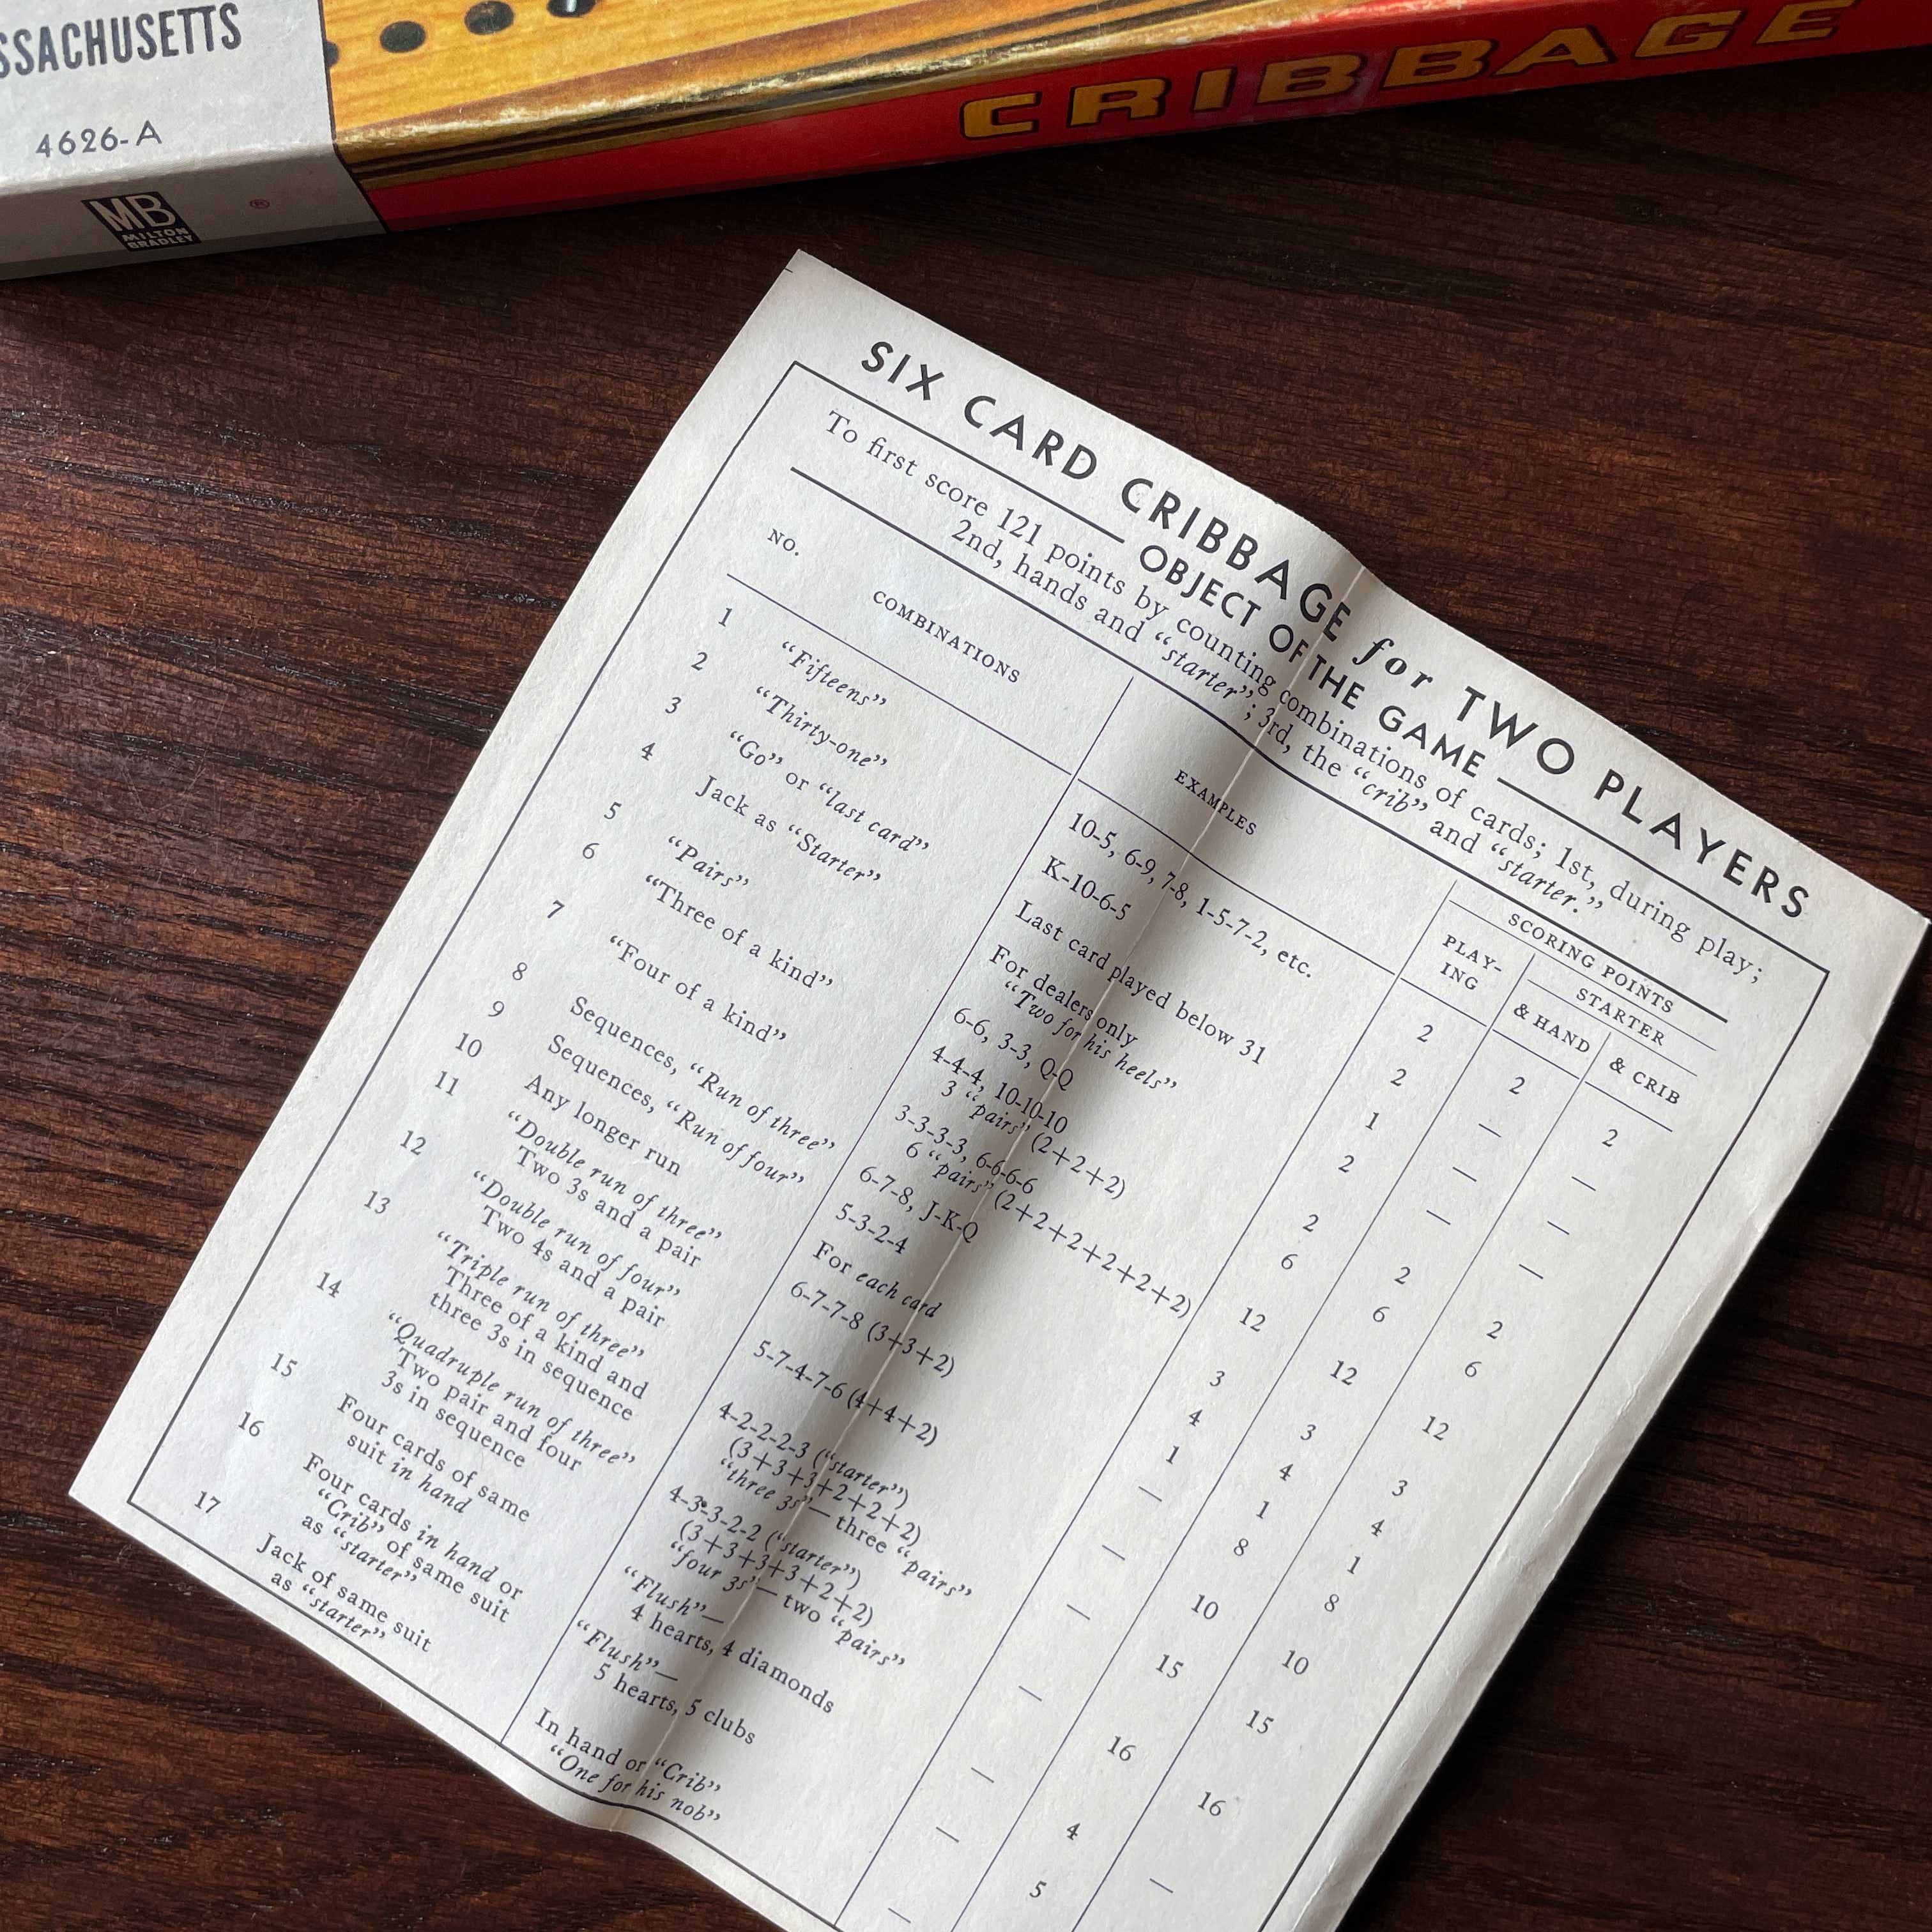 SSACHUSETTS
4626-A
MB
MILTON
BRADLEY
®
CRIBBAGE
SIX CARD CRIBBAGE for TWO PLAYERS
OBJECT OF THE GAME
To first score 121 points by counting combinations of cards; 1st, during play;
2nd, hands and “starter”; 3rd, the “crib” and “starter.”
SCORING POINTS
NO. COMBINATIONS EXAMPLES PLAY-
ING STARTER
& HAND & CRIB
1 “Fifteens” 10-5, 6-9, 7-8, 1-5-7-2, etc. 2 2 2
2 “Thirty-one” K-10-6-5 2 — —
3 “Go” or “last card” Last card played below 31 1 — —
4 Jack as “Starter” For dealers only 2 — —
“Two for his heels”
5 “Pairs” 6-6, 3-3, Q-Q 2 2 2
6 “Three of a kind” 4-4-4, 10-10-10 6 6 6
3 “pairs” (2+2+2)
7 “Four of a kind” 3-3-3-3, 6-6-6-6 12 12 12
6 “pairs” (2+2+2+2+2+2)
8 Sequences, “Run of three” 6-7-8, J-K-Q 3 3 3
9 Sequences, “Run of four” 5-3-2-4 4 4 4
10 Any longer run For each card 1 1 1
11 “Double run of three” 6-7-7-8 (3+3+2) — 8 8
Two 3s and a pair
12 “Double run of four” 5-7-4-7-6 (4+4+2) — 10 10
Two 4s and a pair
13 “Triple run of three” 4-2-2-2-3 (“starter”) — 15 15
Three of a kind and (3+3+3+2+2+2)
three 3s in sequence “three 3s”— three “pairs”
14 “Quadruple run of three” 4-3-3-2-2 (“starter”) — 16 16
Two pair and four (3+3+3+3+2+2)
3s in sequence “four 3s”— two “pairs”
15 Four cards of same “Flush”— — 4 —
suit in hand 4 hearts, 4 diamonds
16 Four cards in hand or “Flush”— — 5
“Crib” of same suit 5 hearts, 5 clubs
as “starter”
17 Jack of same suit In hand or “Crib” —
as “starter” “One for his nob”